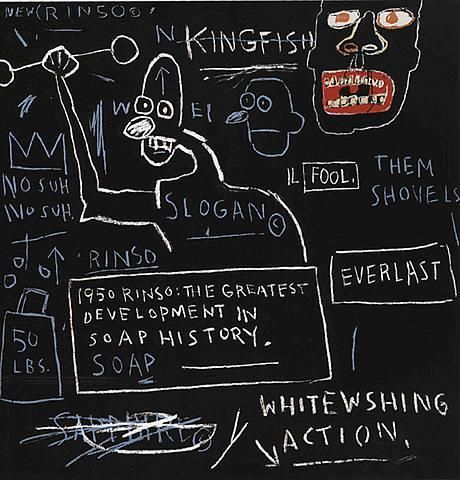 NEW (RINSO©)
N KINGFISH
W EI
NO SUH.
NO SUH.
IL FOOL.
THEM
SHOVELS
SLOGAN ©
RINSO
EVERLAST
1950 RINSO: THE GREATEST
DEVELOPMENT IN
SOAP HISTORY.
SOAP
50
LBS.
SAPPHIRE ©
WHITEWSHING
ACTION.